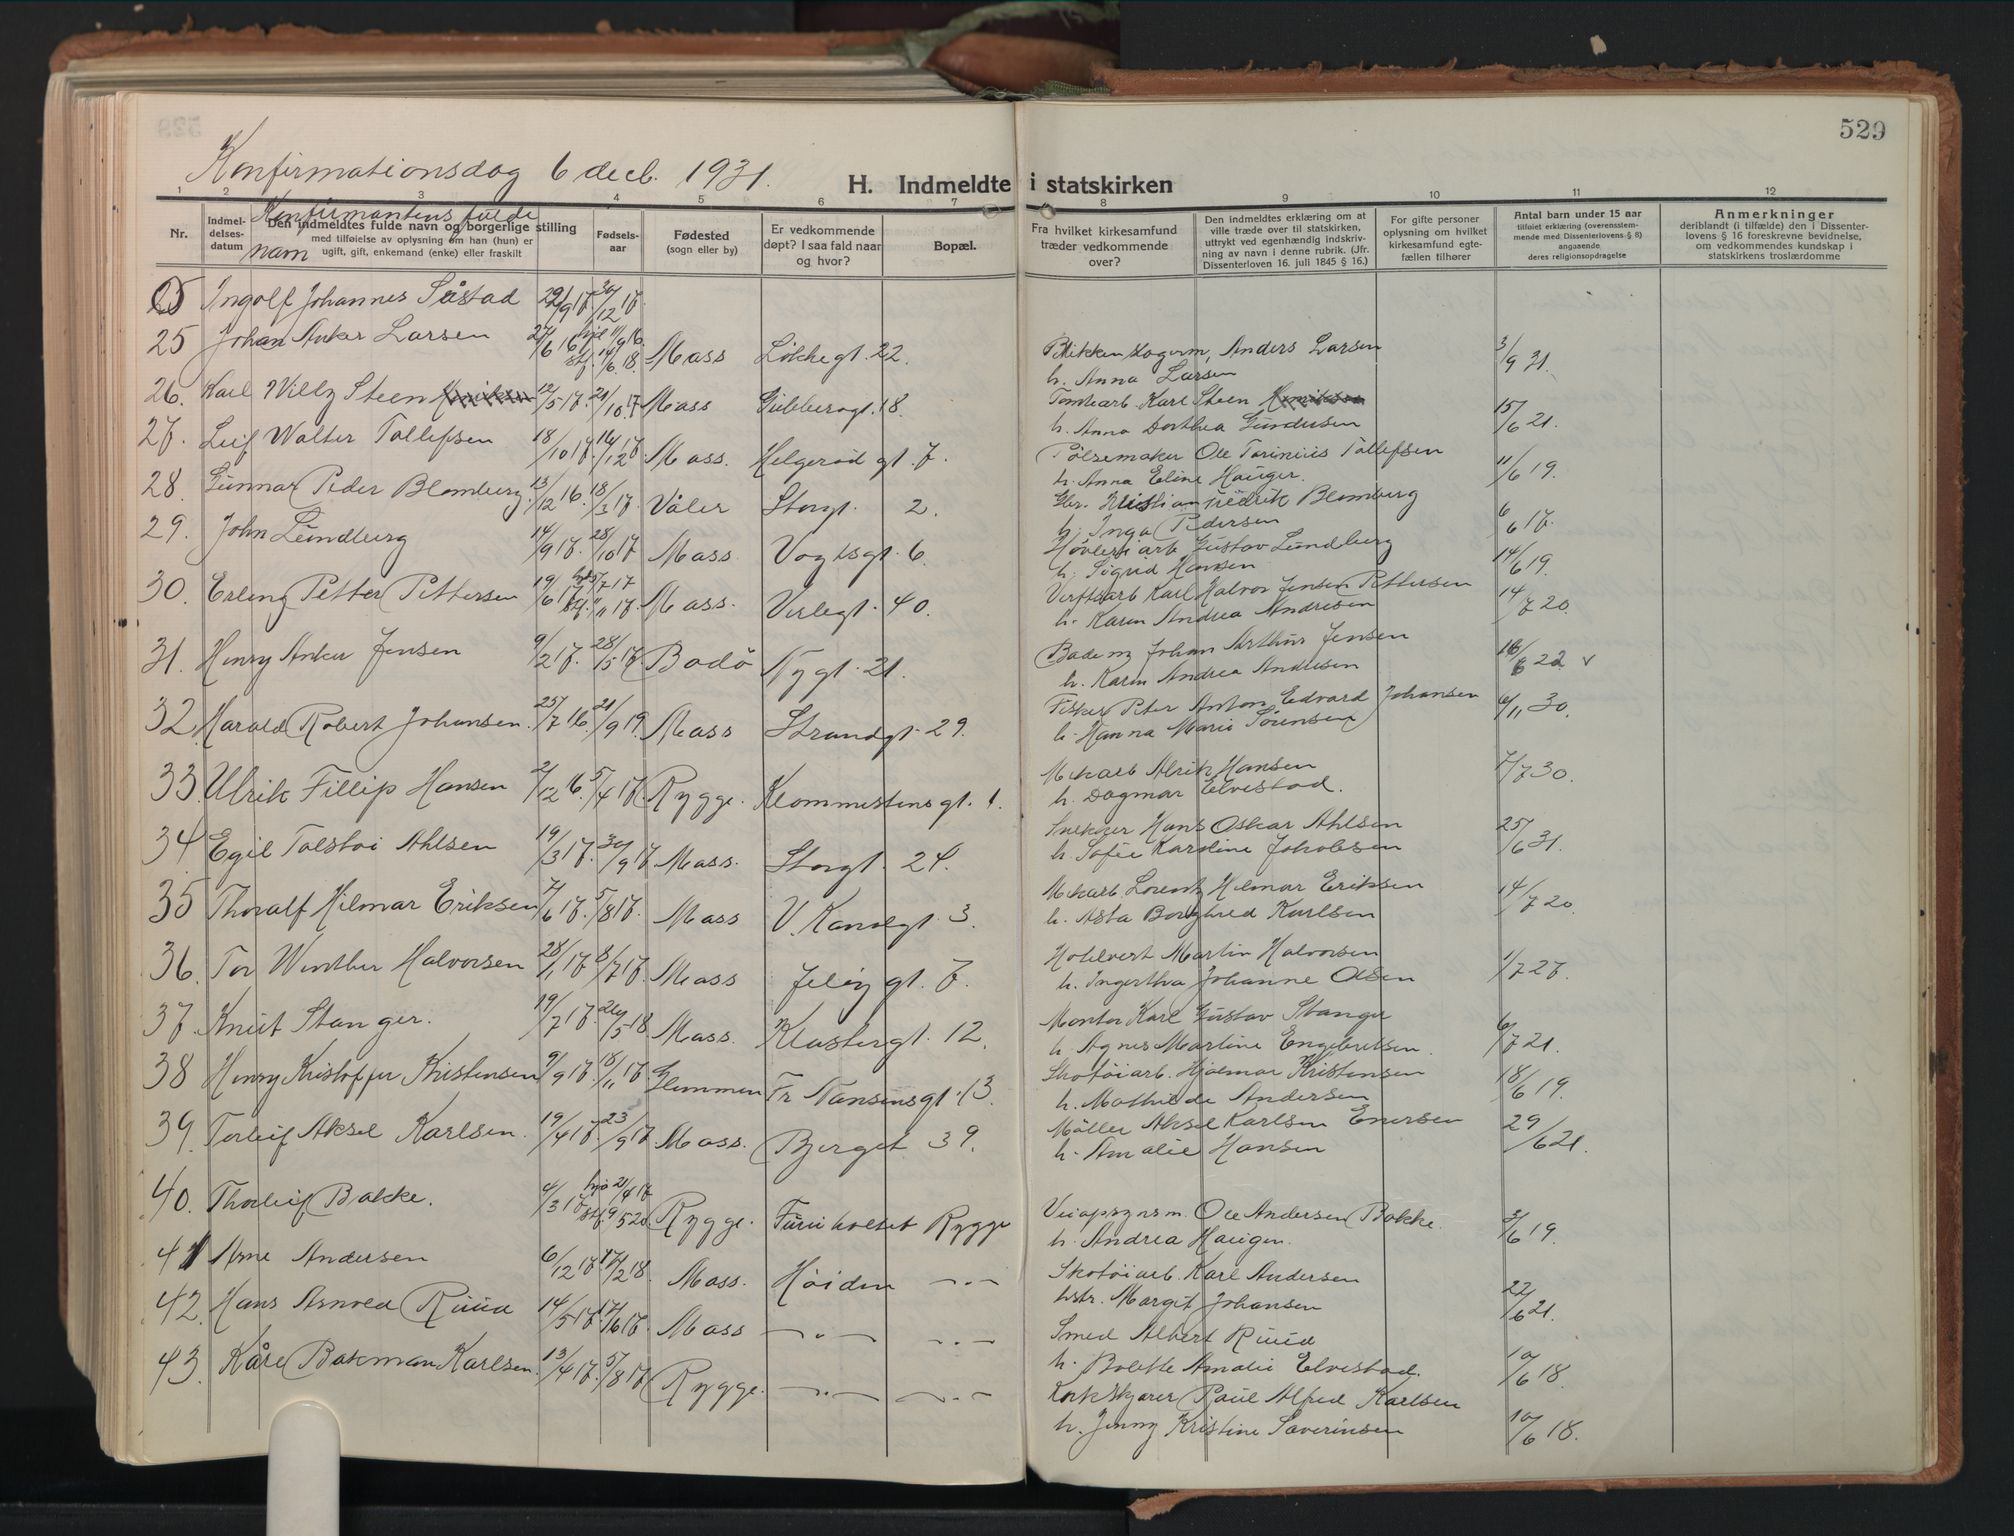 529
Konfirmationsdag 6 decb. 1931.
H. Indmeldte i statskirken
1 2 3 4 5 6 7 8 9 10 11 12
Nr.
Indmel-
delses-
datum
Konfirmantens fulde
navn
Den indmeldtes fulde navn og borgerlige stilling
med tilføielse av oplysning om han (hun) er
ugift, gift, enkemand (enke) eller fraskilt
Fødsels-
aar
Fødested
(sogn eller by)
Er vedkommende
døpt? I saa fald naar
og hvor?
Bopæl.
Fra hvilket kirkesamfund
træder vedkommende
over?
Den indmeldtes erklæring om at
ville træde over til statskirken,
uttrykt ved egenhændig indskriv-
ning av navn i denne rubrik. (Jfr.
Dissenterloven 16. juli 1845 § 16.)
For gifte personer
oplysning om hvilket
kirkesamfund egte-
fællen tilhører
Antal barn under 15 aar
tilføiet erklæring (overensstem-
mende med Dissenterlovens § 8)
angaaende
deres religionsopdragelse
Anmerkninger
deriblandt (i tilfælde) den i Dissenter-
lovens § 16 foreskrevne bevidnelse,
om vedkommendes kundskap i
statskirkens troslærdomme
Ingolf Johannes Såstad 22/9 17. 30/12 17
25 Johan Anker Larsen 27/6 16 hjd 11/9 16. stf. 14/6 18. Moss Løkkegt. 22. Anders Larsen 3/9 31.
h. Anna Larsen
26. Karl Willy Steen 12/5 17. 21/10 17 Moss Gudesgt. 18. Tomtearb. Karl Steen 15/6 21.
h. Anna Dorthea Gundersen
27. Leif Walter Tollefsen 18/10 17. 16/12 17 Moss. Helgerød gt. 7. Pølsemaker Ole Tarinius Tollefsen 11/6 19.
h. Anna Eline Hauger.
28. Gunnar Peder Blomberg. 13/12 16. 18/3 17. Våler Storgt. 2. Kristian Fredrik Blomberg 6/6 17.
h. Inga Pedersen
29. John Lundberg 14/9 17. 28/10 17 Moss. Vogtsgt. 6. Høvleriarb Gustav Lundberg 14/6 19.
h. Sigrid Hansen
30. Erling Petter Pettersen 19/6 17 hjd 5/7 17 Moss. Verlegt. 40. Verftsarb Karl Halvor Jensen Pettersen 14/7 20
h. Karen Andrea Andresen
31. Henry Anker Jensen 9/2 17. 28/5 17. Bodø Nygt. 21. Bade m Johan Arthur Jensen 16/6 22 v
h. Karen Andrea Andresen
32 Harald Robert Johansen. 25/7 16. 21/9 19. Moss Strandgt. 29. Fisker Peter Anton Edvard Johansen 6/11 30.
h. Hanna Marie Sørensen
33. Ulrik Fillip Hansen 2/12 16. 5/4 17. Rygge. Klommestensgt. 1. Mekarb Alrik Hansen 7/7 30.
h. Dagmar Elvestad.
34. Egil Tolstoi Ahlsen 19/3 17. 30/9 17 Moss. Storgt. 24. Snekker Hans Oskar Ahlsen 25/6 31.
h. Sofie Karoline Jakobsen
35 Thoralf Hilmar Eriksen 7/6 17. 5/8 17. Moss V. Kanalgt. 3. Mekarb Lorentz Hilmar Eriksen 14/7 20.
h. Asta Borghild Karlsen
36. Tor Winther Halvorsen 28/1 17. 8/7 17. Moss Jeløygt. 7. Hotelvert Martin Halvorsen 1/7 27.
h. Ingertha Johanne Olsen
37. Knut Stanger. 19/7 17. 26/5 18 Moss. Klostergt. 12. Montør Karl Gustav Stanger 6/7 21.
h. Agnes Martine Engebretsen.
38 Henry Kristoffer Kristensen 9/9 17. 18/11 17 Glemmen Fr Nansensgt. 13. Skotøiarb. Hjalmar Kristensen 18/6 19.
h. Mathilde Andersen
39. Torleif Aksel Karlsen. 19/4 17. 23/9 17. Moss. Bjerget 39. Møller Aksel Karlsen Enersen 29/6 21.
h. Amalie Hansen
40. Thorleif Bakke. 4/3 17 hjd 21/4 17 stf. 9/5 20. Rygge. Furuholtet Rygge Veiopsynsm. Ole Andersen Bakke. 3/6 19.
h. Andrea Haugen.
41 Arne Andersen 6/12 17 17/2 18. Moss. Høiden — " — Skotøiarb. Karl Andersen 22/6 21.
hstr. Margit Johansen
42. Hans Arnold Ruud 14/5 17. 17/6 17. Moss — " — — " — Smed Albert Ruud 10/6 18.
h. Bolette Amalie Elvestad.
43. Kåre Bakman Karlsen. 13/4 17. 5/8 17 Rygge. — " — — " — Korkskjærer Paul Alfred Karlsen 10/6 18.
h. Jenny Kristine Saverinsen